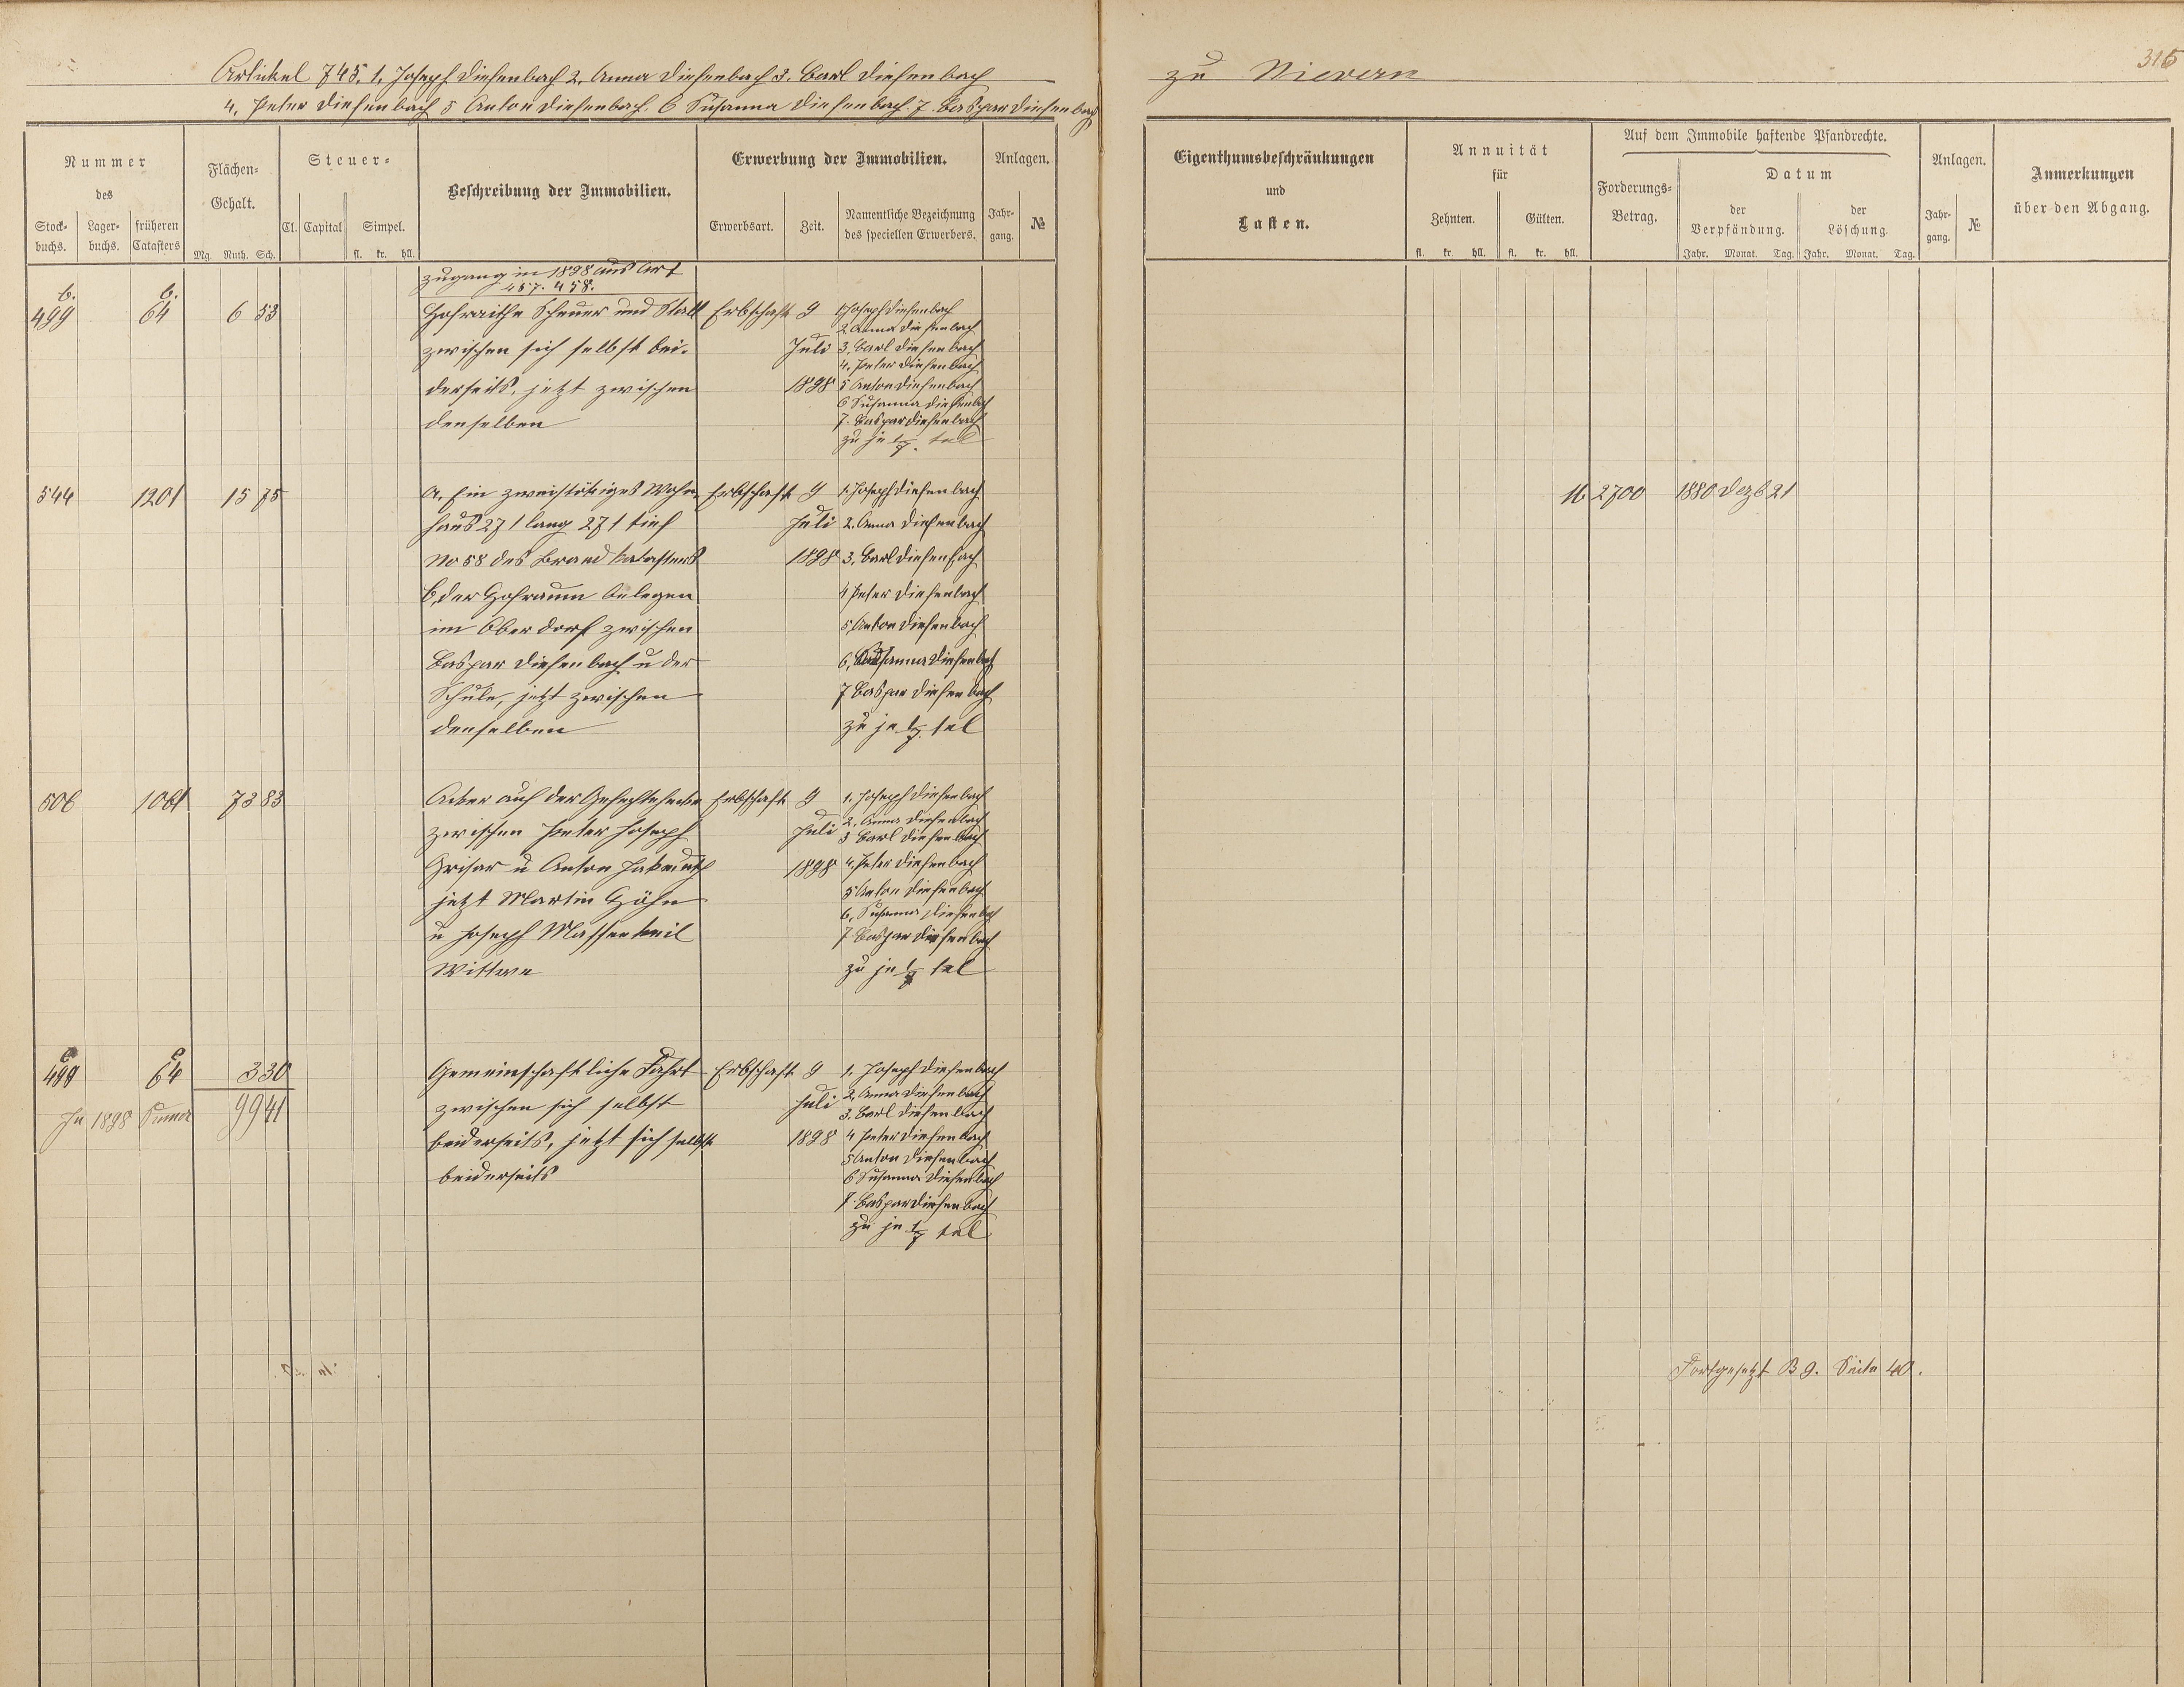 Artickel 745. 1. Joseph Diefenbach 2. Anna Diefenbach 3. Carl Diefenbach
4. Peter Diefenbach 5 Anton Diefenbach. 6 Susanna Diefenbach 7. Caspar Diefenbach
Nummer
des
Stock-
buchs.
Lager-
buchs.
früheren
Catasters
Flächen-
Gehalt.
Mg. Ruth. Sch.
Steuer-
Cl. Capital
Simpel.
fl. kr. hll.
Beschreibung der Immobilien.
Erwerbung der Immobilien.
Erwerbsart.
Zeit.
Namentliche Bezeichnung
des speciellen Erwerbers.
Anlagen.
Jahr-
gang.
№
Zugang in 1898 aus Art
457. 458.
b. b.
499 64 6 53
Hofraithe Scheuer und Stall
zwischen sich selbst bei-
derseits, jetzt zwischen
denselben
Erbschaft
9
Juli
1898
1 Joseph Diefenbach
2. Anna Diefenbach
3. Carl Diefenbach
4. Peter Diefenbach
5 Anton Diefenbach
6 Susanna Diefenbach
7. Caspar Diefenbach
zu je 1/7 tel
544 1201 15 75
A. Ein zweistökiges Wohn-
haus 27' lang 27' tief
No 58 des Brand katasters
b, der Hofraum belegen
im Oberdorf zwischen
Caspar Diefenbach u der
Schule, jetzt zwischen
denselben
Erbschaft
9
Juli
1898
1. Joseph Diefenbach
2. Anna Diefenbach
3. Carl Diefenbach
4 Peter Diefenbach
5, Anton Diefenbach
6, Susanna Diefenbach
7 Caspar Diefenbach
zu je 1/7 tel
506 1061 73 83
Acker auf der
zwischen Peter Joseph
Grisar u Anton
jetzt Martin Höhn
u Joseph Massenkeil
Wittwe
Erbschaft
9
Juli
1898
1. Joseph Diefenbach
2. Anna Diefenbach
3 Carl Diefenbach
4. Peter Diefenbach
5 Anton Diefenbach
6, Susanna Diefenbach
7 Caspar Diefenbach
zu je 1/7 tel
c c
499 64 3 30
In 1898 Summa 99 41
Gemeinschaftliche Fahrt
zwischen sich selbst
beiderseits, jetzt sich selbst
beiderseits
Erbschaft
9
Juli
1898
1. Joseph Diefenbach
2. Anna Diefenbach
3. Carl Diefenbach
4 Peter Diefenbach
5 Anton Diefenbach
6 Susanna Diefenbach
7. Caspar Diefenbach
zu je 1/7 tel
zu Nievern
315
Eigenthumsbeschränkungen
und
Lasten.
Annuität
für
Zehnten.
Gülten.
fl. kr. hll. fl. kr. hll.
Auf dem Immobile haftende Pfandrechte.
Forderungs-
Betrag.
Datum
der
Verpfändung.
der
Löschung.
Jahr. Monat. Tag. Jahr. Monat. Tag.
Anlagen.
Jahr-
gang.
№
Anmerkungen
über den Abgang.
16 2700 1880 Dezb 21
Fortgesetzt B 9. Seite 40.